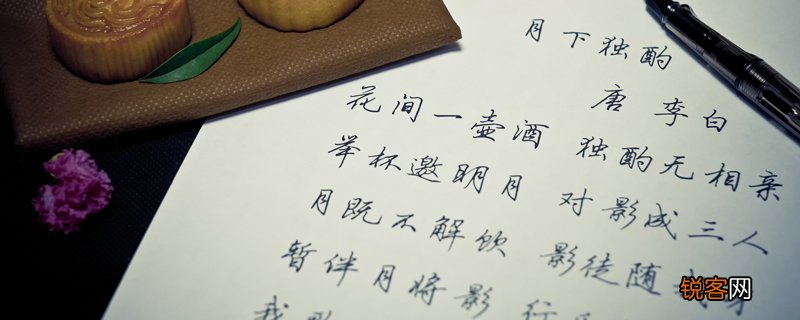 月下独酌
唐 李白
花间一壶酒 独酌无相亲
举杯邀明月 对影成三人
月既不解饮 影徒随
暂伴月将影 行
我
锐客网